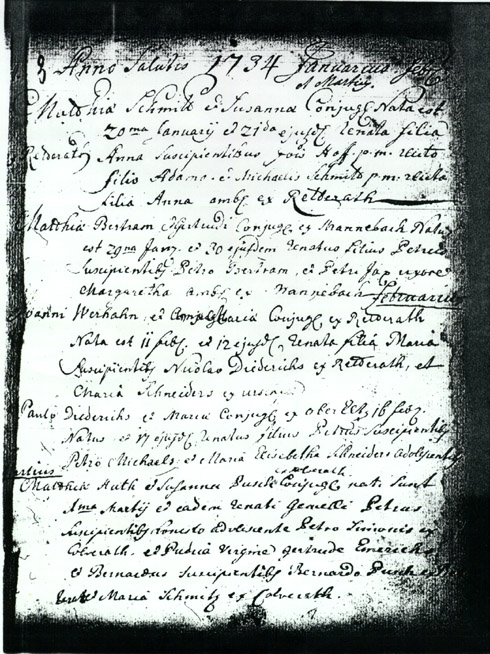 Anno Salutis 1734 Januarius feb
et Martius
Matthiæ Schmitt et Susanna Conjug Nata est
20ma Januarij et 21da ejusd renata filia
Retderath Anna Suscipientibus Hoff p.m. relicto
filio Adamo et Michaelis Schmitt p.m. relicta
filia Anna amb ex Retderath
Matthiæ Bertram Gertrudi Conjug ex Mannebach Natus
est 29na Janry et 30 ejusdem renatus filius Petrus
Suscipientib Petro Bertram, et Petri Jax uxore
Margaretha amb ex Mannebach februarius
Joanni Werhahn, et Maria Conjug ex Retderath
Nata est 11 feb et 12 ejusd renata filia Maria
Suscipientib Nicolao Diederichs ex Retderath, et
Maria Schneiders ex
Paulo Diederichs et Maria Conjug ex ober 16 feb
Natus et 17 ejusd renatus filius Petrus Suscipientib
Petro Michaels et Maria Elisabetha Schneiders adolescentib
Martius Colverath
Matthiæ Huth et Susanna Conjug nati sunt
1ma Martij et eadem renati Gemelli Petrus
Suscipientib honesto adolescente Petro Simonis ex
Colverath et Pudica Virgine Gertrude Emerichs
et Bernardus Suscipientib Bernardo
Maria Schmitz ex Colverath.